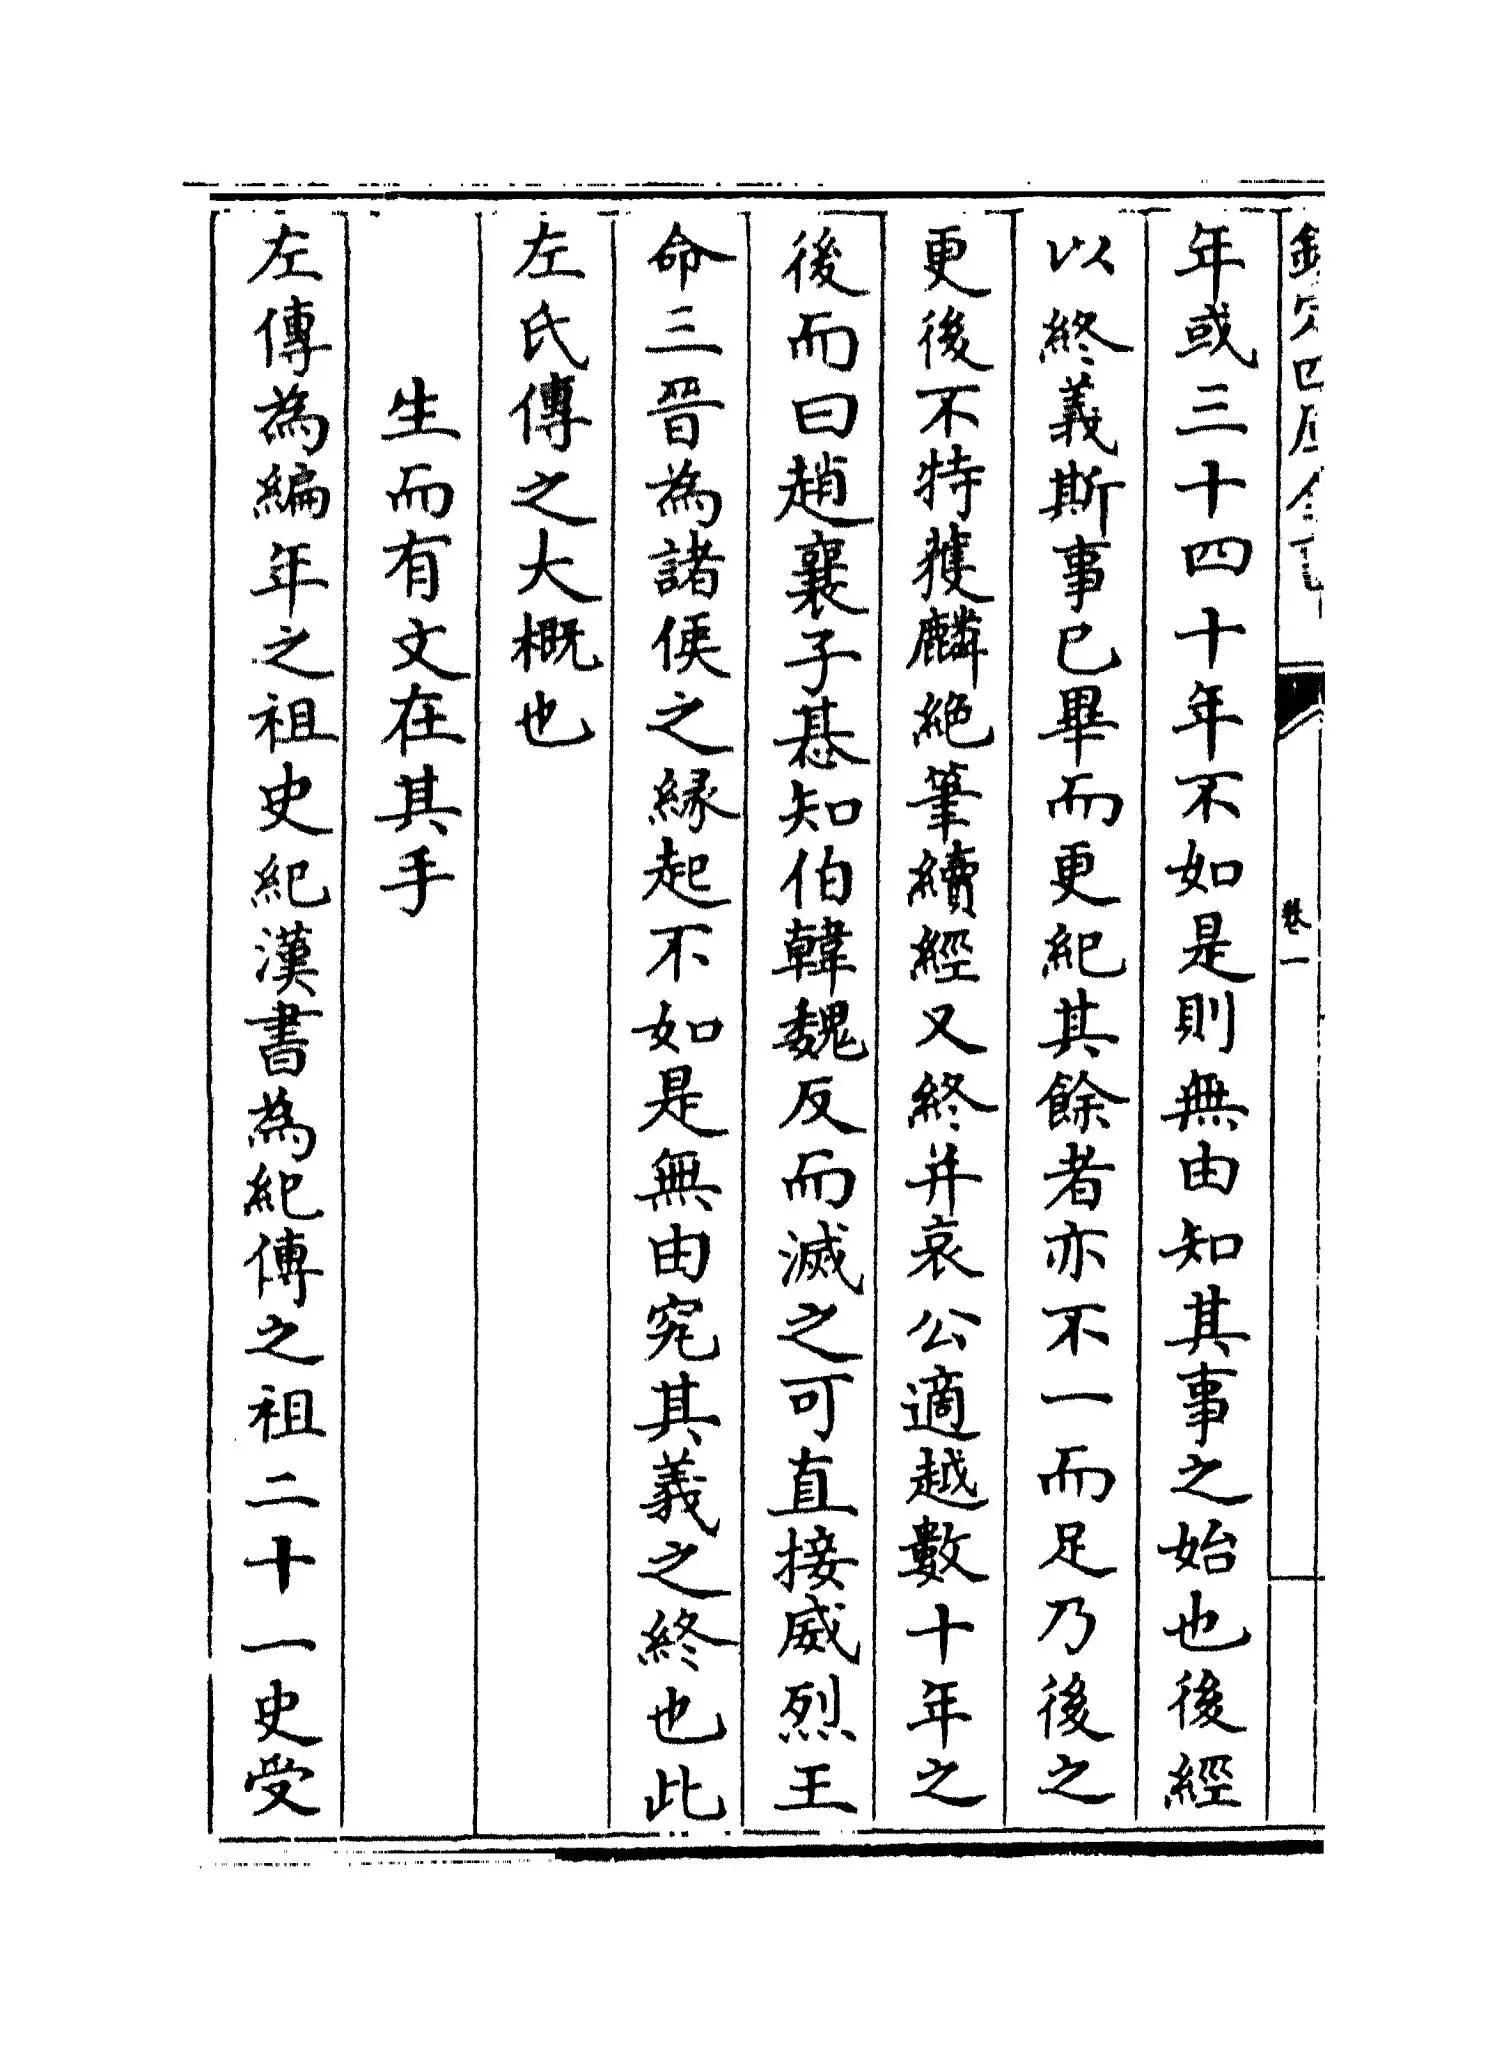 欽定四庫全書
卷一
年或三十四十年不如是則無由知其事之始也後經
以終義斯事已畢而更紀其餘者亦不一而足乃後之
更後不特獲麟絶筆續經又終并哀公適越數十年之
後而曰趙襄子惎知伯韓魏反而滅之可直接威烈王
命三晉為諸侯之緣起不如是無由究其義之終也此
左氏傳之大概也
生而有文在其手
左傳為編年之祖史紀漢書為紀傳之祖二十一史受